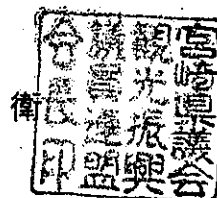 衛
宮崎県議会
観光振興
議員連盟
会長印